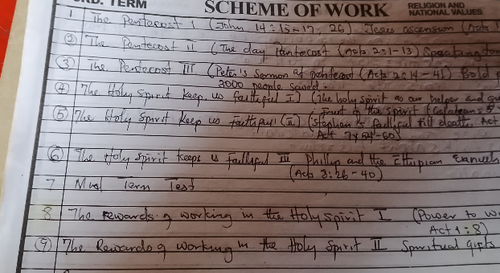 3RD. TERM SCHEME OF WORK RELIGION AND NATIONAL VALUES
1 The Pentecost I (John 14:15-17, 26). Jesus ascension (Acts
② The Pentecost II (The day Pentecost (Acts 2:1-13) Speaking
③ The Pentecost III (Peter's Sermon at pentecost (Acts 2:14-41) Bold
3000 people saved.
④ The Holy Spirit Keep us faithful I) (The holy spirit as our helper and
fruit of the Spirit
⑤ The Holy Spirit Keep us faithful (II) (Stephen is faithful till death. Act
Act 7:54-60)
⑥ The Holy Spirit Keeps us Faithful III Phillip and the Ethiopian
(Acts 8:26-40)
7 Mid Term Test
8 The rewards of working in the Holy Spirit I (Power to
Act 1:8)
⑨ The Rewards of working in the Holy Spirit II Spiritual gifts